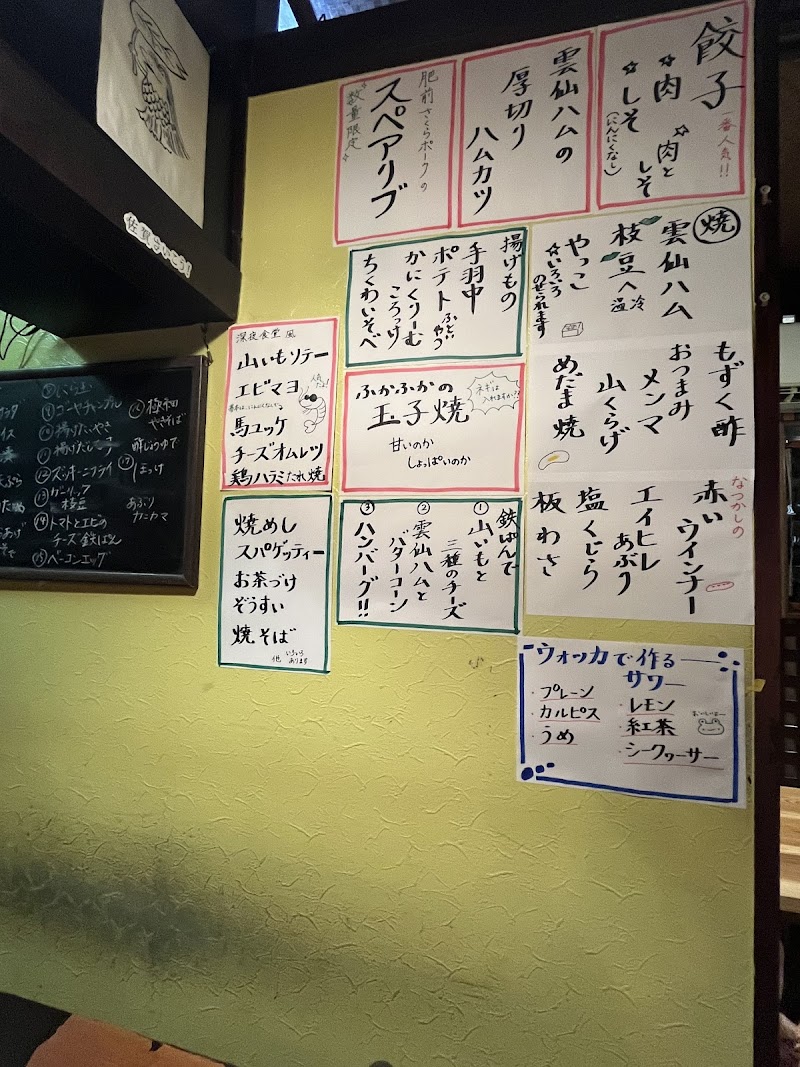 餃子
一番人気!!
☆肉 ☆肉としそ
☆しそ
(にんにくなし)
雲仙ハムの
厚切り
ハムカツ
肥前さくらポークの
スペアリブ
数量限定
佐賀さいこう!
焼
雲仙ハム
枝豆 冷 温
やっこ
☆いろいろ
のせられます
もずく酢
おつまみ
メンマ
山くらげ
めだま焼
なつかしの
赤いウインナー
エイヒレ
あぶり
塩くじら
板わさ
揚げもの
手羽中
ポテト ふといやつ
かにくりーむ
ころっけ
ちくわいそべ
ふかふかの
玉子焼
ネギは
入れますか?
甘いのか
しょっぱいのか
鉄ぱんで
①山いもと
三種のチーズ
②雲仙ハムと
バターコーン
③ハンバーグ!!
深夜食堂風
山いもソテー
エビマヨ
人気だよ!
馬ユッケ
チーズオムレツ
鶏ハラミたれ焼
焼めし
スパゲッティー
お茶づけ
ぞうすい
焼そば
他 いろいろ
あります
ウォッカで作る
サワー
・プレーン
・カルピス
・うめ
・レモン
・紅茶
・シークヮーサー
⑨ゴーヤチャンプル
⑩揚げたいやき
⑪揚げだし
⑫ズッキーニフライ
⑬ガーリック
枝豆
⑭トマトとエビの
チーズ鉄ぱん
⑮ベーコンエッグ
やきそば
酢じょうゆで
⑰ほっけ
あぶり
カニカマ